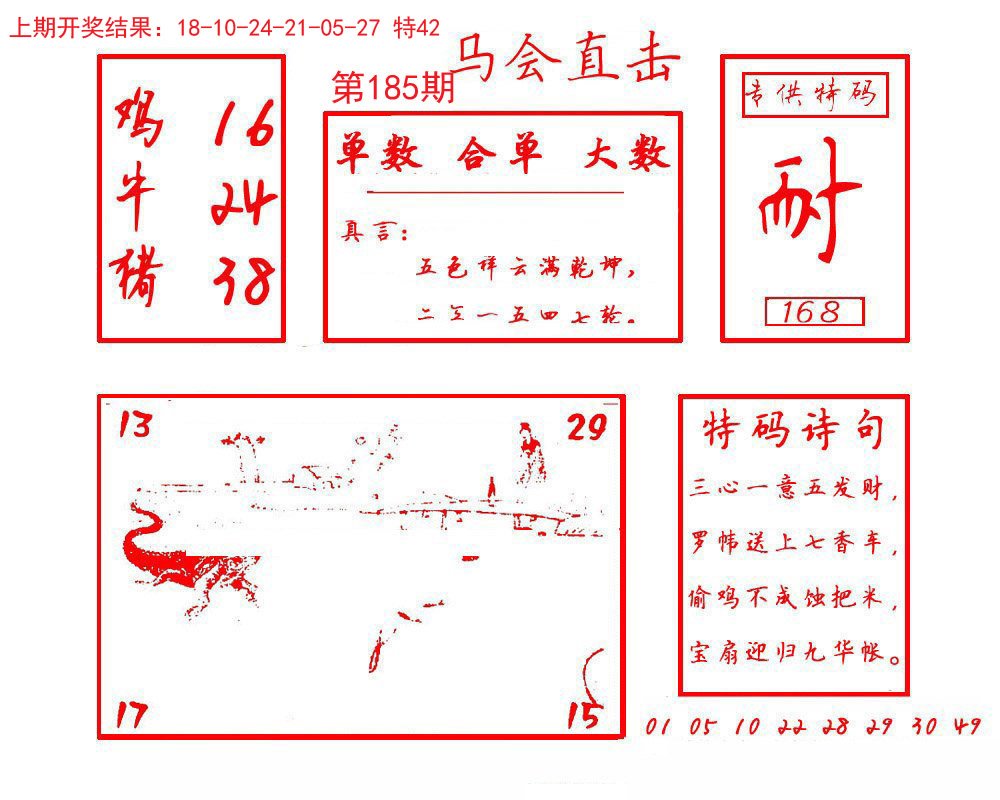 上期开奖结果：18-10-24-21-05-27 特42
马会直击
第185期
鸡 16
牛 24
猪 38
单数 合单 大数
真言：
五色祥云满乾坤，
二三一五四七轮。
专供特码
耐
168
13 29
17 15
特码诗句
三心一意五发财，
罗帏送上七香车，
偷鸡不成蚀把米，
宝扇迎归九华帐。
01 05 10 22 28 29 30 49